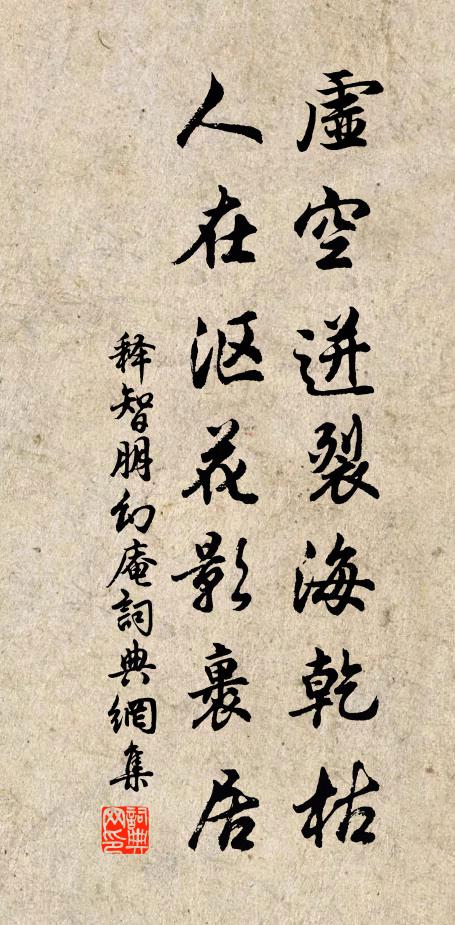 虛空迸裂海乾枯
人在漚花影裏居
释智朋幻庵詞典網集
詞典网印